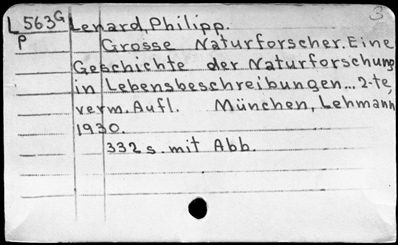 3
L563G Lenard, Philipp.
P Grosse Naturforscher. Eine
Geschichte der Naturforschung
in Lebensbeschreibungen... 2-te,
verm. Aufl. München, Lehmann
1930.
332 s. mit Abb.